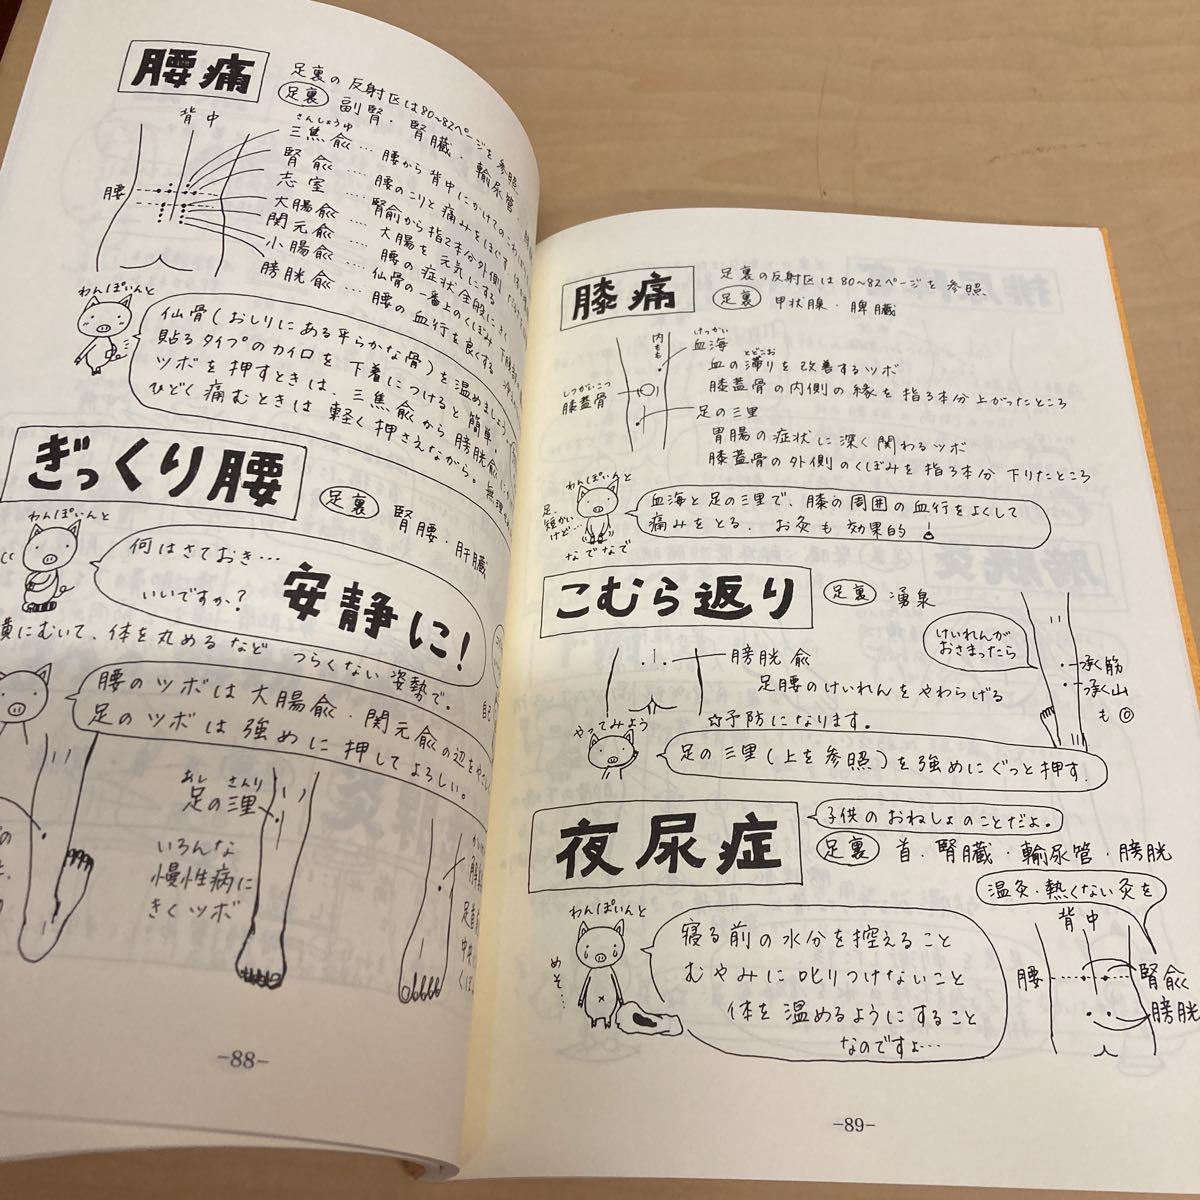 腰痛
足裏の反射区は80~82ページを参照
足裏 副腎・腎臓・輸尿管・
背中
腰
さんしょうゆ
三焦兪…腰から背中にかけての
腎兪…腰のこりと痛みをほぐす
志室…腎兪から指2本分外側
大腸兪…大腸を元気にする
関元兪…腰の症状全般にきく
小腸兪…仙骨の一番上のくぼみ
膀胱兪…腰の血行を良くする
わんぽいんと
仙骨(おしりにある平らかな骨)を温めましょう。
貼るタイプのカイロを下着につけると簡単。
ツボを押すときは、三焦兪から膀胱兪
ひどく痛むときは軽く押さえながら。無理
ぎっくり腰
足裏 腎腰・肝臓
わんぽいんと
何はさておき…
いいですか?
安静に!
横にむいて、体を丸めるなど つらくない姿勢で。
腰のツボは大腸兪・関元兪の辺をやさし
足のツボは強めに押してよろしい。
あし さんり
足の三里
いろんな
慢性病に
きくツボ
-88-
膝痛
足裏の反射区は80~82ページを参照
足裏 甲状腺・脾臓
内もも
けっかい
血海
とどこお
血の滞りを改善するツボ
膝蓋骨の内側の縁を指3本分上がったところ
しつがいこつ
膝蓋骨
足の三里
胃腸の症状に深く関わるツボ
膝蓋骨の外側のくぼみを指3本分下りたところ
わんぽいんと
足、
短かい
けど…
なでなで
血海と足の三里で、膝の周囲の血行をよくして
痛みをとる。 お灸も効果的!
こむら返り
足裏 湧泉
けいれんが
おさまったら
承筋
承山
も◎
膀胱兪
足腰のけいれんをやわらげる
☆予防になります。
やってみよう
足の三里(上を参照)を強めにぐっと押す。
夜尿症
子供のおねしょのことだよ。
足裏 首・腎臓・輸尿管・膀胱
温灸・熱くない灸を
背中
腰
腎兪
膀胱
わんぽいんと
めそ…
寝る前の水分を控えること
むやみに叱りつけないこと
体を温めるようにすること
なのですよ…
-89-